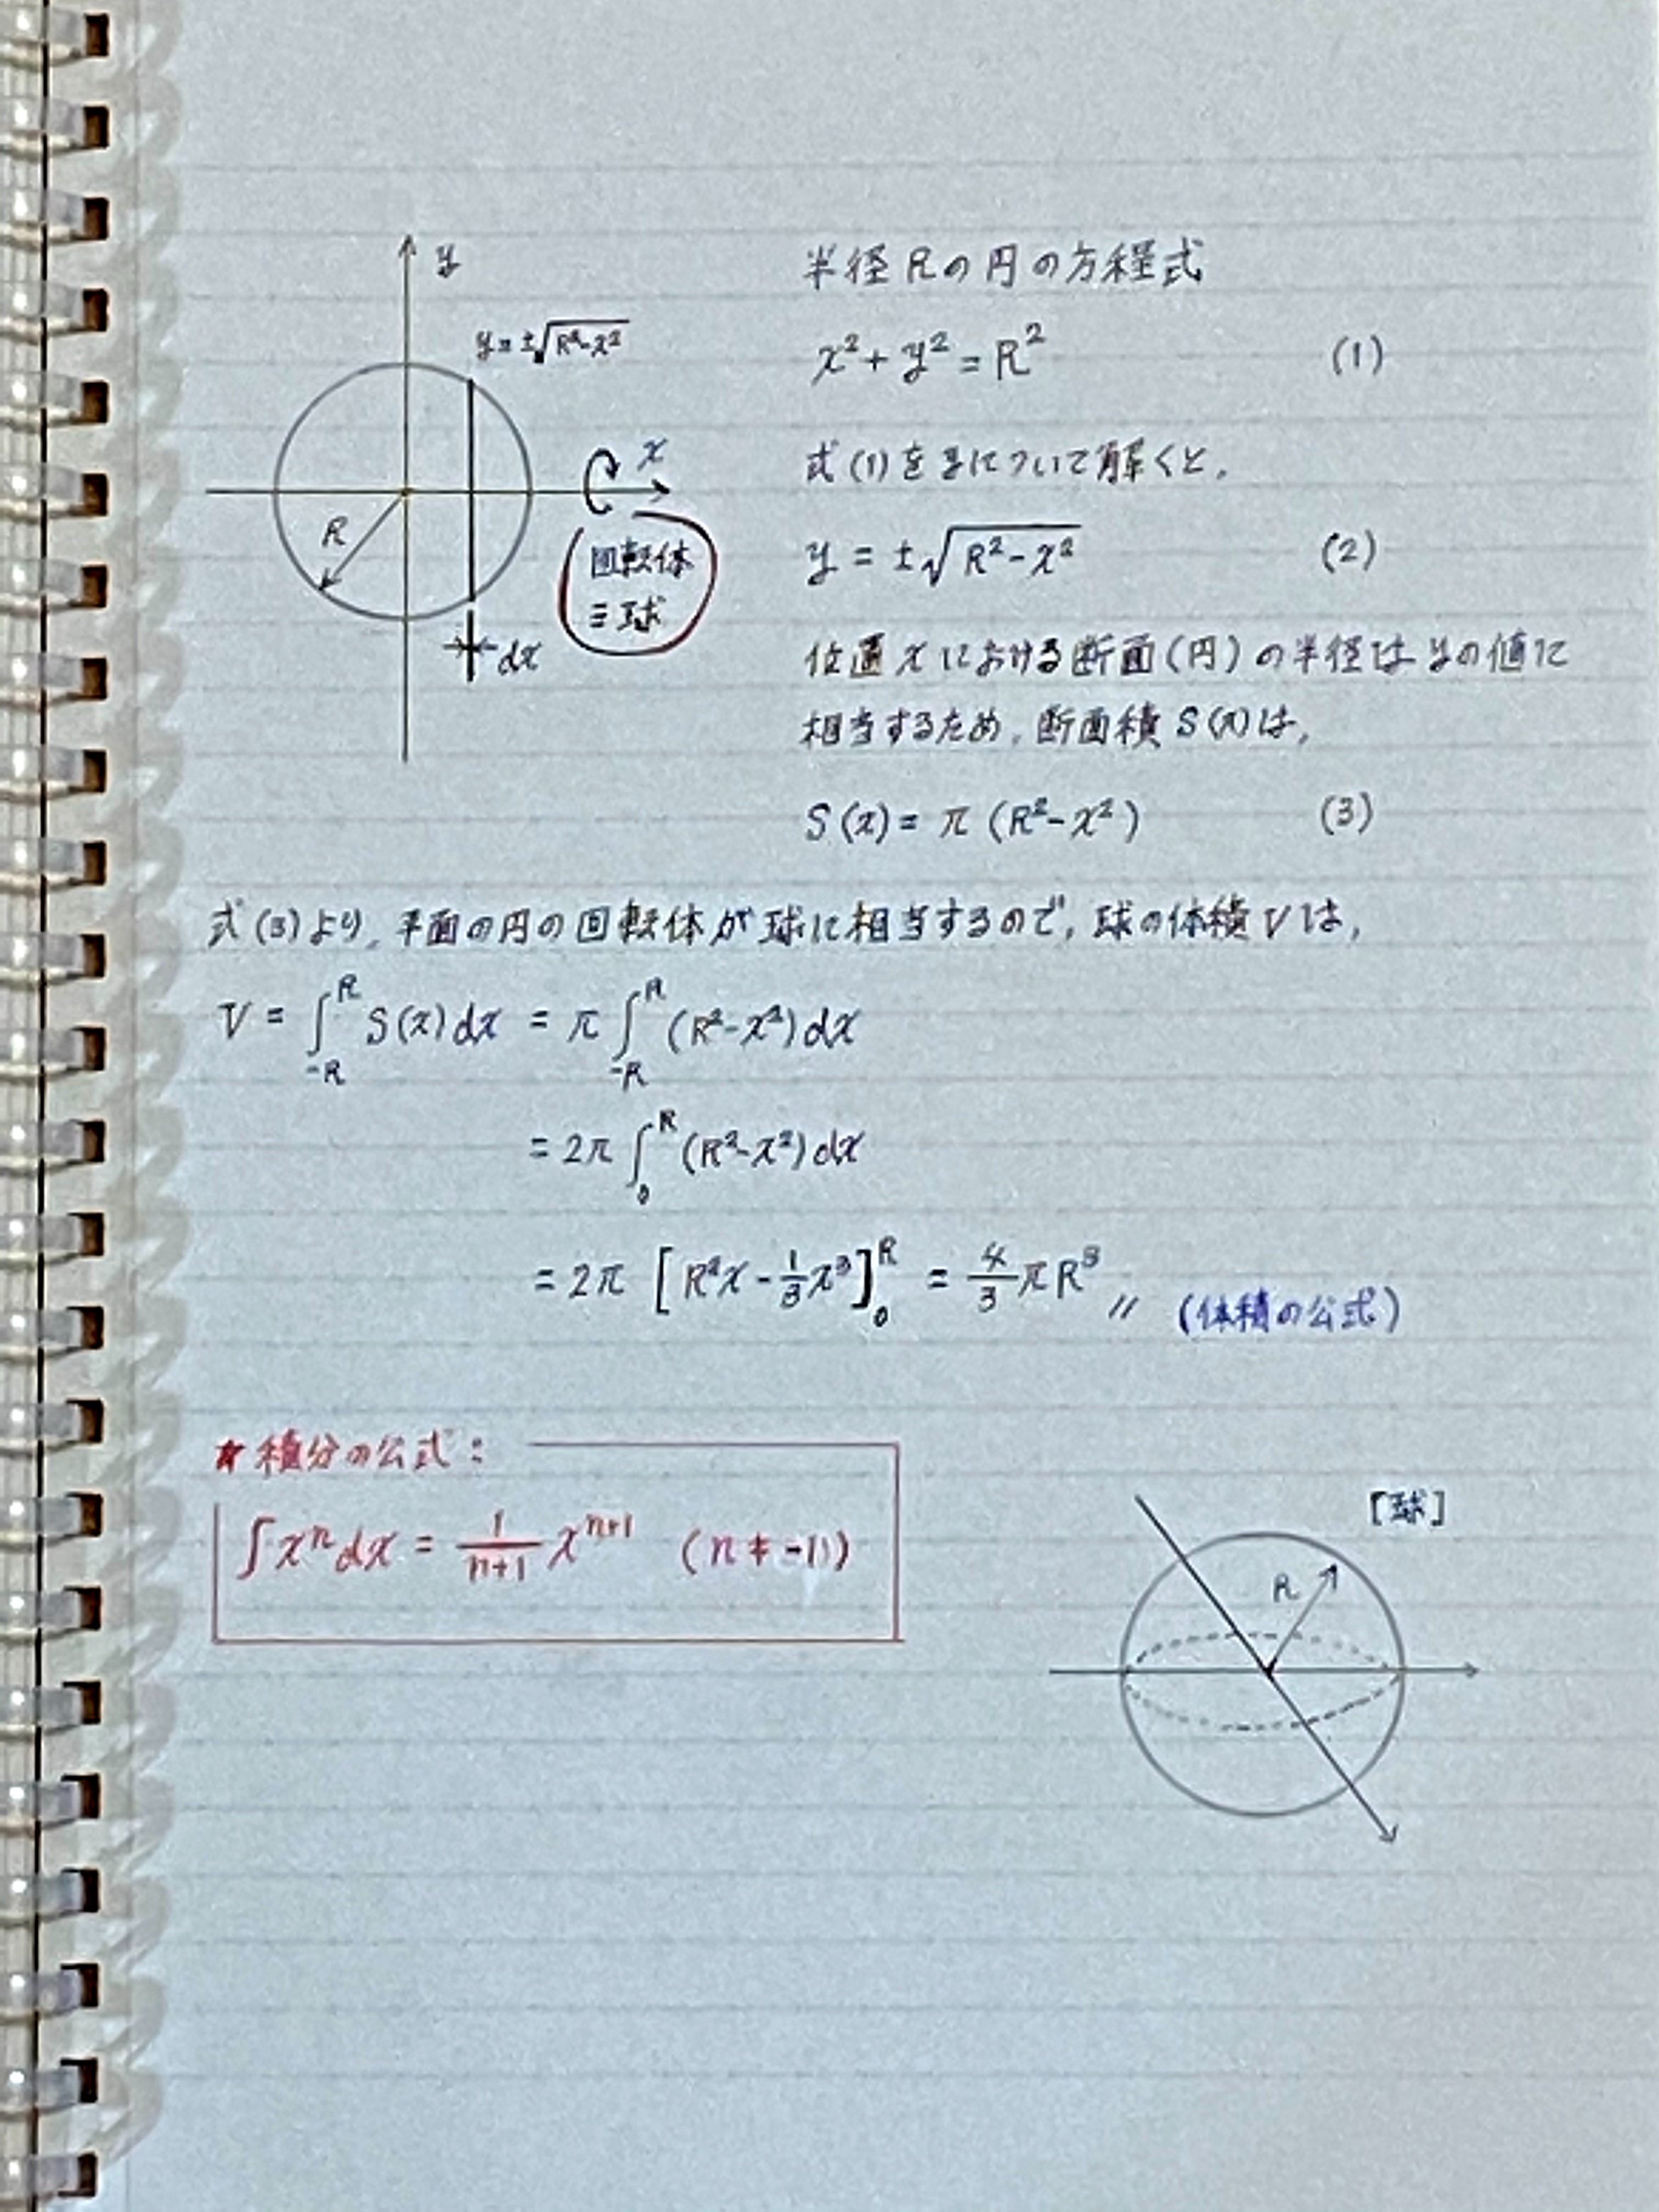 y
y = ±√R²-x²
x
R
回転体
≡球
dx
半径Rの円の方程式
x² + y² = R² (1)
式(1)をyについて解くと,
y = ±√R²-x² (2)
位置xにおける断面(円)の半径はyの値に
相当するため,断面積S(x)は,
S(x) = π(R²-x²) (3)
式(3)より,平面の円の回転体が球に相当するので,球の体積Vは,
V = ∫_{-R}^{R} S(x)dx = π∫_{-R}^{R} (R²-x²)dx
= 2π∫_{0}^{R} (R²-x²)dx
= 2π[R²x - 1/3 x³]_{0}^{R} = 4/3 πR³ 〃 (体積の公式)
★積分の公式:
∫xⁿdx = 1/(n+1) xⁿ⁺¹ (n≠-1)
[球]
R